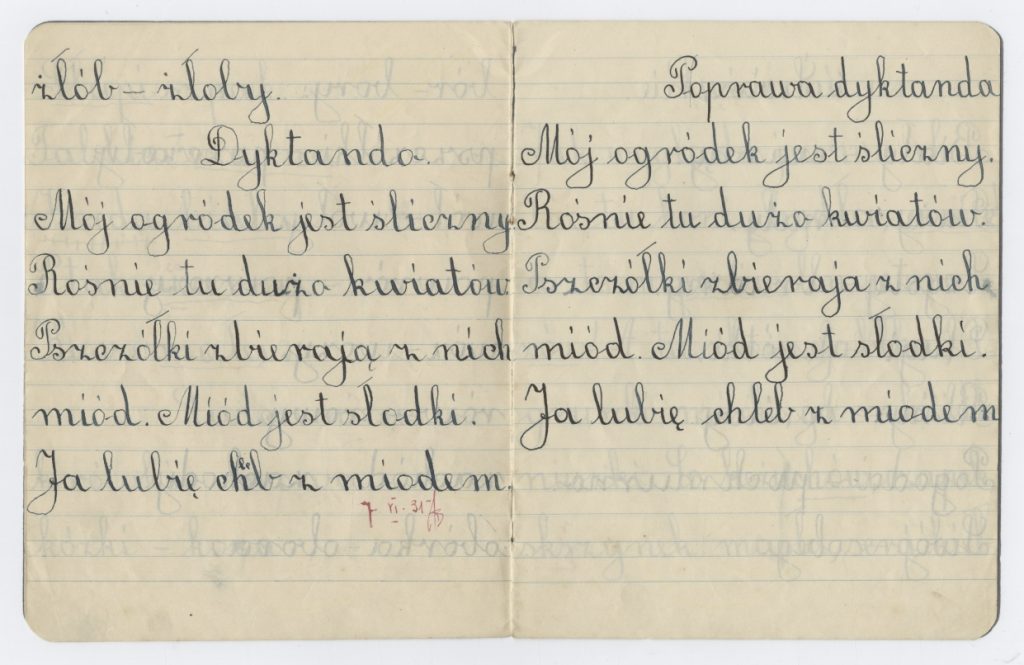 żłób – żłoby.
Dyktando.
Mój ogródek jest śliczny.
Rośnie tu dużo kwiatów
Pszczółki zbierają z nich
miód. Miód jest słodki.
Ja lubię chleb z miodem.
7 VI. 31
Poprawa dyktanda
Mój ogródek jest śliczny.
Rośnie tu dużo kwiatów.
Pszczółki zbieraja z nich
miód. Miód jest słodki.
Ja lubię chleb z miodem